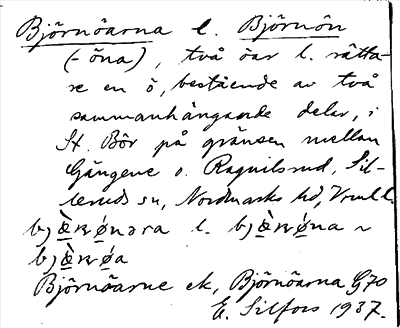 Björnöarna l. Björnön
(-öna), två öar l. rätta-
re en ö, bestående av två
sammanhängande delar, i
St. Bör på gränsen mellan
Gängene o. Ragvilsrud, Sil-
leruds sn, Nordmarks hd, Vrml.
l. ~
Björnöarne ek, Björnöarna G70
E. Silfors 1937.